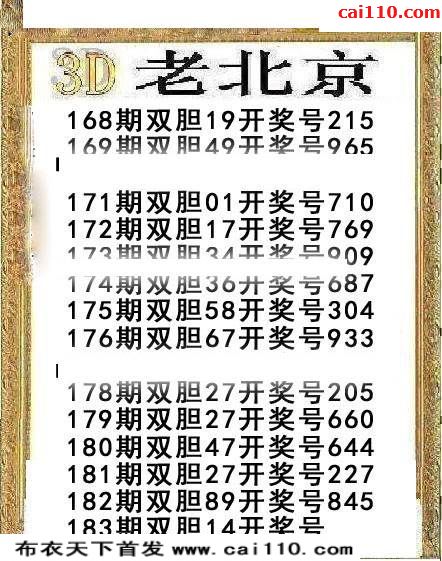 cai110.com
3D 老北京
168期双胆19开奖号215
169期双胆49开奖号965
171期双胆01开奖号710
172期双胆17开奖号769
173期双胆34开奖号909
174期双胆36开奖号687
175期双胆58开奖号304
176期双胆67开奖号933
178期双胆27开奖号205
179期双胆27开奖号660
180期双胆47开奖号644
181期双胆27开奖号227
182期双胆89开奖号845
183期双胆14开奖号
布衣天下首发 www.cai110.com